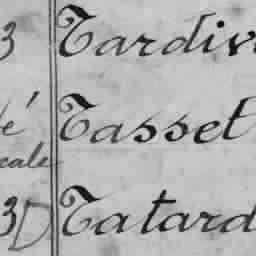 3 Tardiv
é Tasset
cale
3D Tatard